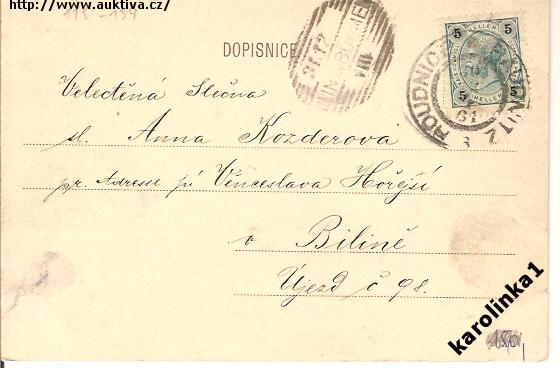 http://www.auktiva.cz/
DOPISNICE
5 5
5 5
31.12
ROUDNICE
Velectěná Slečna
sl. Anna Kozderová
pr. Adresse pí Věnceslava Hořejší
v Bílině
Újezd č 98.
karolinka1